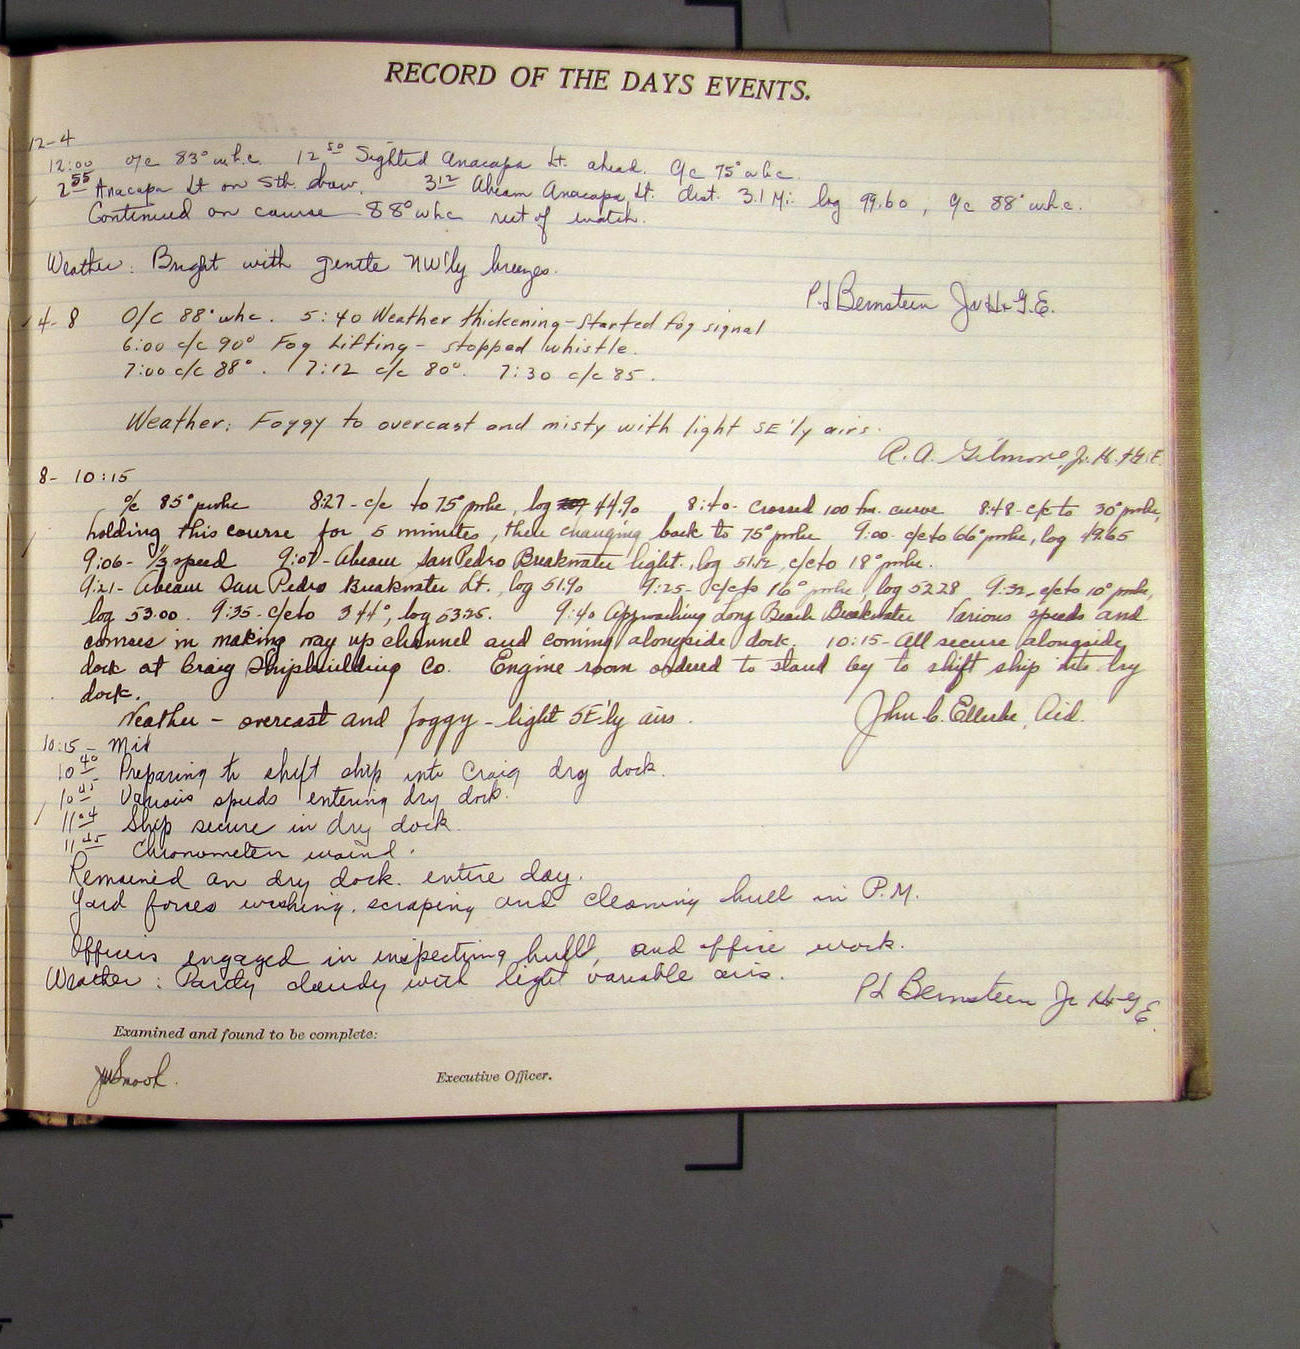 RECORD OF THE DAYS EVENTS.
12-4
12:00 o/c 83° whc. 12 50 Sighted Anacapa Lt. ahead. c/c 75° whc.
2 55 Anacapa Lt on Stb. bow. 3 12 Abeam Anacapa Lt. dist. 3.1 Mi. log 99.60, c/c 88° whc.
Continued on course 88° whc rest of watch.
Weather: Bright with gentle NW'ly breezes.
Bernstein Jr. H.& G.E.
4-8 O/C 88° whc. 5:40 Weather thickening - Started fog signal
6:00 c/c 90° Fog Lifting - stopped whistle.
7:00 c/c 88°. 7:12 c/c 80°. 7:30 c/c 85.
Weather: Foggy to overcast and misty with light SE'ly airs.
R. A. Gilmore, Jr. H. & G.E.
8- 10:15
o/c 85° pwhc 8:27 - c/c to 75° pwhc, log 44.90 8:40 - crossed 100 fm. curve 8:48 - c/c to 30° pwhc,
holding this course for 5 minutes, then changing back to 75° pwhc 9:00 - c/c to 66° pwhc, log 49.65
9:06 - 1/3 speed 9:07 - Abeam San Pedro Breakwater light, log 51.12, c/c to 18° pwhc.
9:21 - Abeam San Pedro Breakwater Lt., log 51.90 9:25 - c/c to 16° pwhc, log 52.28 9:32 - c/c to 10° pwhc,
log 53.00. 9:35 - c/c to 344°, log 53.25. 9:40 Approaching Long Beach Breakwater Various speeds and
courses in making way up channel and coming alongside dock. 10:15 - All secure alongside
dock at Craig Shipbuilding Co. Engine room ordered to stand by to shift ship into dry
dock.
Weather - overcast and foggy - light SE'ly airs. John C. Ellerbe, Aid.
10:15 - Mid
10 40 Preparing to shift ship into Craig dry dock.
10 45 Various speeds entering dry dock.
11 04 Ship secure in dry dock.
11 45 Chronometers wound.
Remained on dry dock entire day.
Yard forces washing, scraping and cleaning hull in P.M.
Officers engaged in inspecting hull, and office work.
Weather: Partly cloudy with light variable airs.
Bernstein Jr H & G E.
Examined and found to be complete:
Executive Officer.